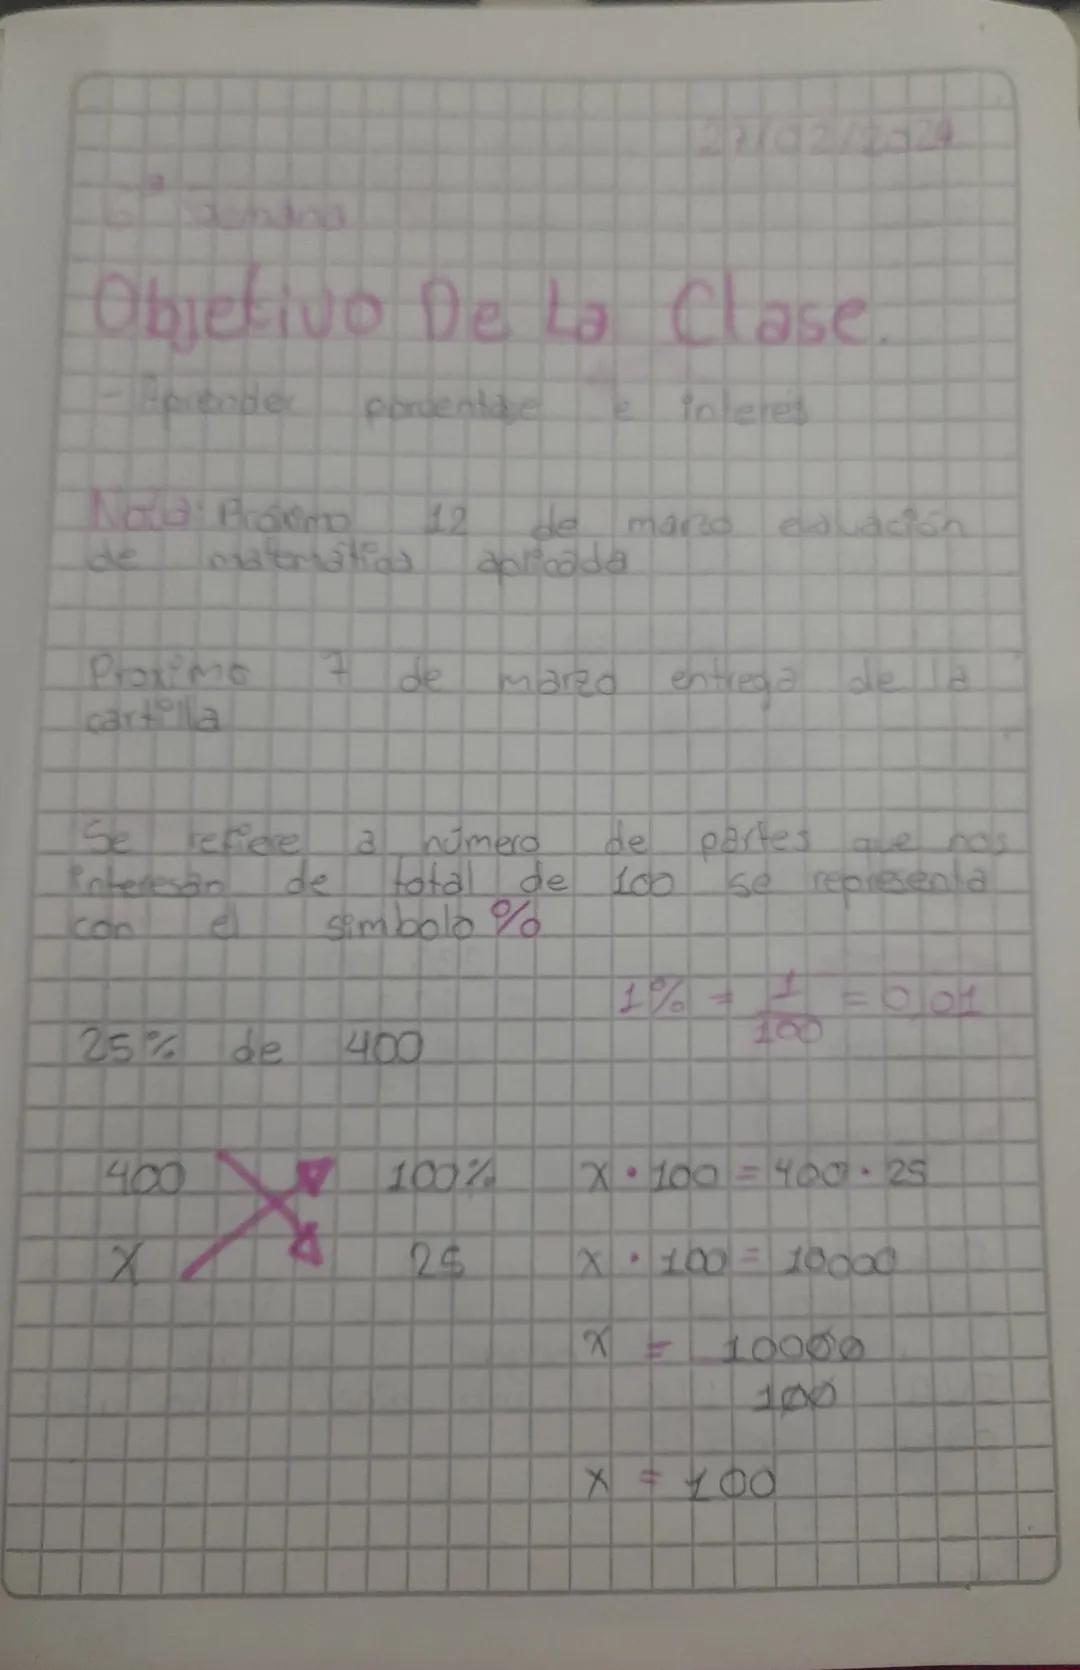 27/02/2024
6ª Semana
Objetivo De La Clase.
- Aprender porcentaje e interes
Nota: Próximo 12 de marzo evaluación
de matemática aplicada
Proximo 7 de marzo entrega de la
cartilla
Se refiere a número de partes que nos
interesan de total de 100 se representa
con el simbolo %
1% = 1/100 = 0,01
25% de 400
400 100% x · 100 = 400 · 25
x 25 x · 100 = 10000
x = 10000
100
x = 100